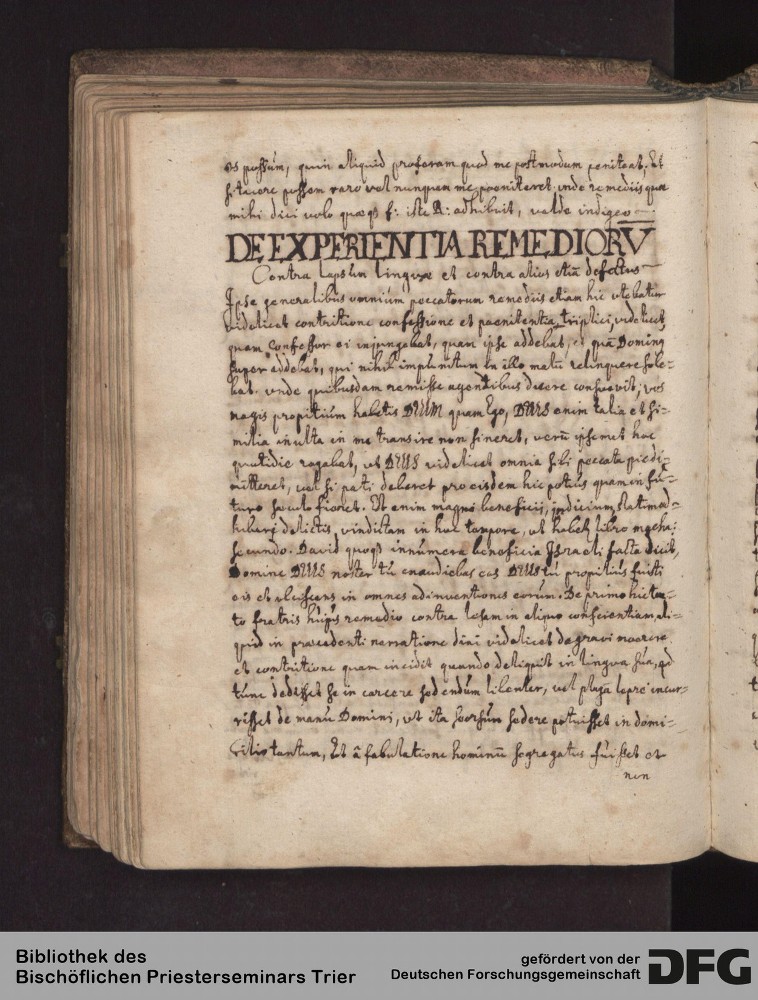 os possum, quin aliquid proferam quod me postmodum peniteat. Et
si tacere possem raro vel nunquam me poeniteret. unde remediis quæ
mihi dici volo quæ f: iste R: adhibuit, valde indigeo
DE EXPERIENTIA REMEDIORV̄
Contra lapsum linguæ et contra alios etiā defectus
Ipse generalibus omnium peccatorum remediis etiam hic utebatur
videlicet contritione confessione et pænitentia triplici, videlicet
quam Confessor ei injungebat, quam ipse addebat, et quā Dominus
super addebat, qui nihil impunitum in illo malū relinquere sole-
bat. unde quibusdam remisse agentibus dicere consuevit, vos
magis propitium habetis DEUM quam Ego, DEUS enim talia et si-
milia inulta in me transire non sineret, verū ipsemet hoc
quotidie rogabat, ut DEUS videlicet omnia sibi peccata
mitteret, vel si pati deberet pro eisdem hic potius quam in fu-
turo sæculo fieret. Et enim magni beneficij, indicium
hibere delictis vindictam in hoc tempore, ut habet libro macha:
secundo. David quoq innumera beneficia Israeli facta dicit,
Domine DEUS noster tū exaudiebas eos DEUS tū propitius fuisti
eis et ulciscens in omnes adinventiones eorum. De primo
to fratris hujus remedio contra lesam in aliquo conscientiam, ali-
quid in præcedenti narratione dixi videlicet de gravi mœrore
et contritione quam incidit quando deliquit in lingua sua, qd
tunc dedisset se in carcere sedendum libenter, vel plagā lepre incur-
risset de manu Domini, ut ita seorsum sedere potuisset in domi-
cilio tantum, Et â fabulatione hominū segregatus fuisset et
non
Bibliothek des
Bischöflichen Priesterseminars Trier
gefördert von der
Deutschen Forschungsgemeinschaft
DFG